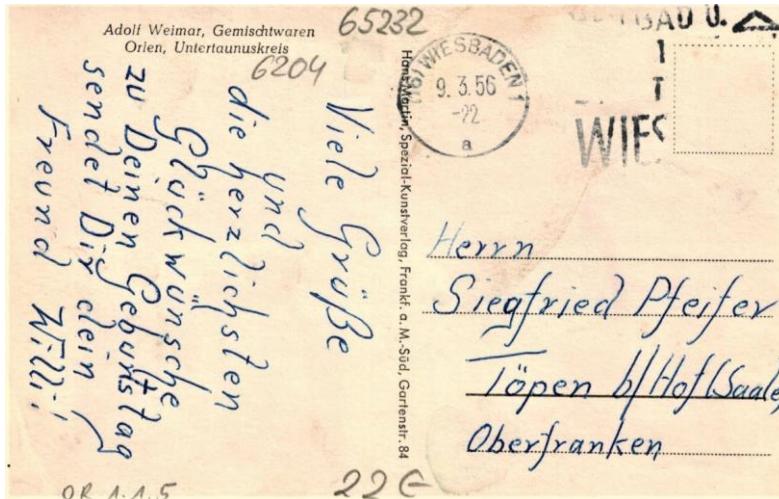 Adolf Weimar, Gemischtwaren
Orlen, Untertaunuskreis
65232
6204
Viele Grüße
und
die herzlichsten
Glückwünsche
zu Deinen Geburtstag
sendet Dir dein
Freund Willi!
Hans Martin, Spezial-Kunstverlag, Frankf. a. M.-Süd, Gartenstr. 84
(16) WIESBADEN 1
9.3.56
-22
a
BAD U.
WIES
Herrn
Siegfried Pfeifer
Töpen b/Hof/Saale
Oberfranken
OR 1.1.5
22€